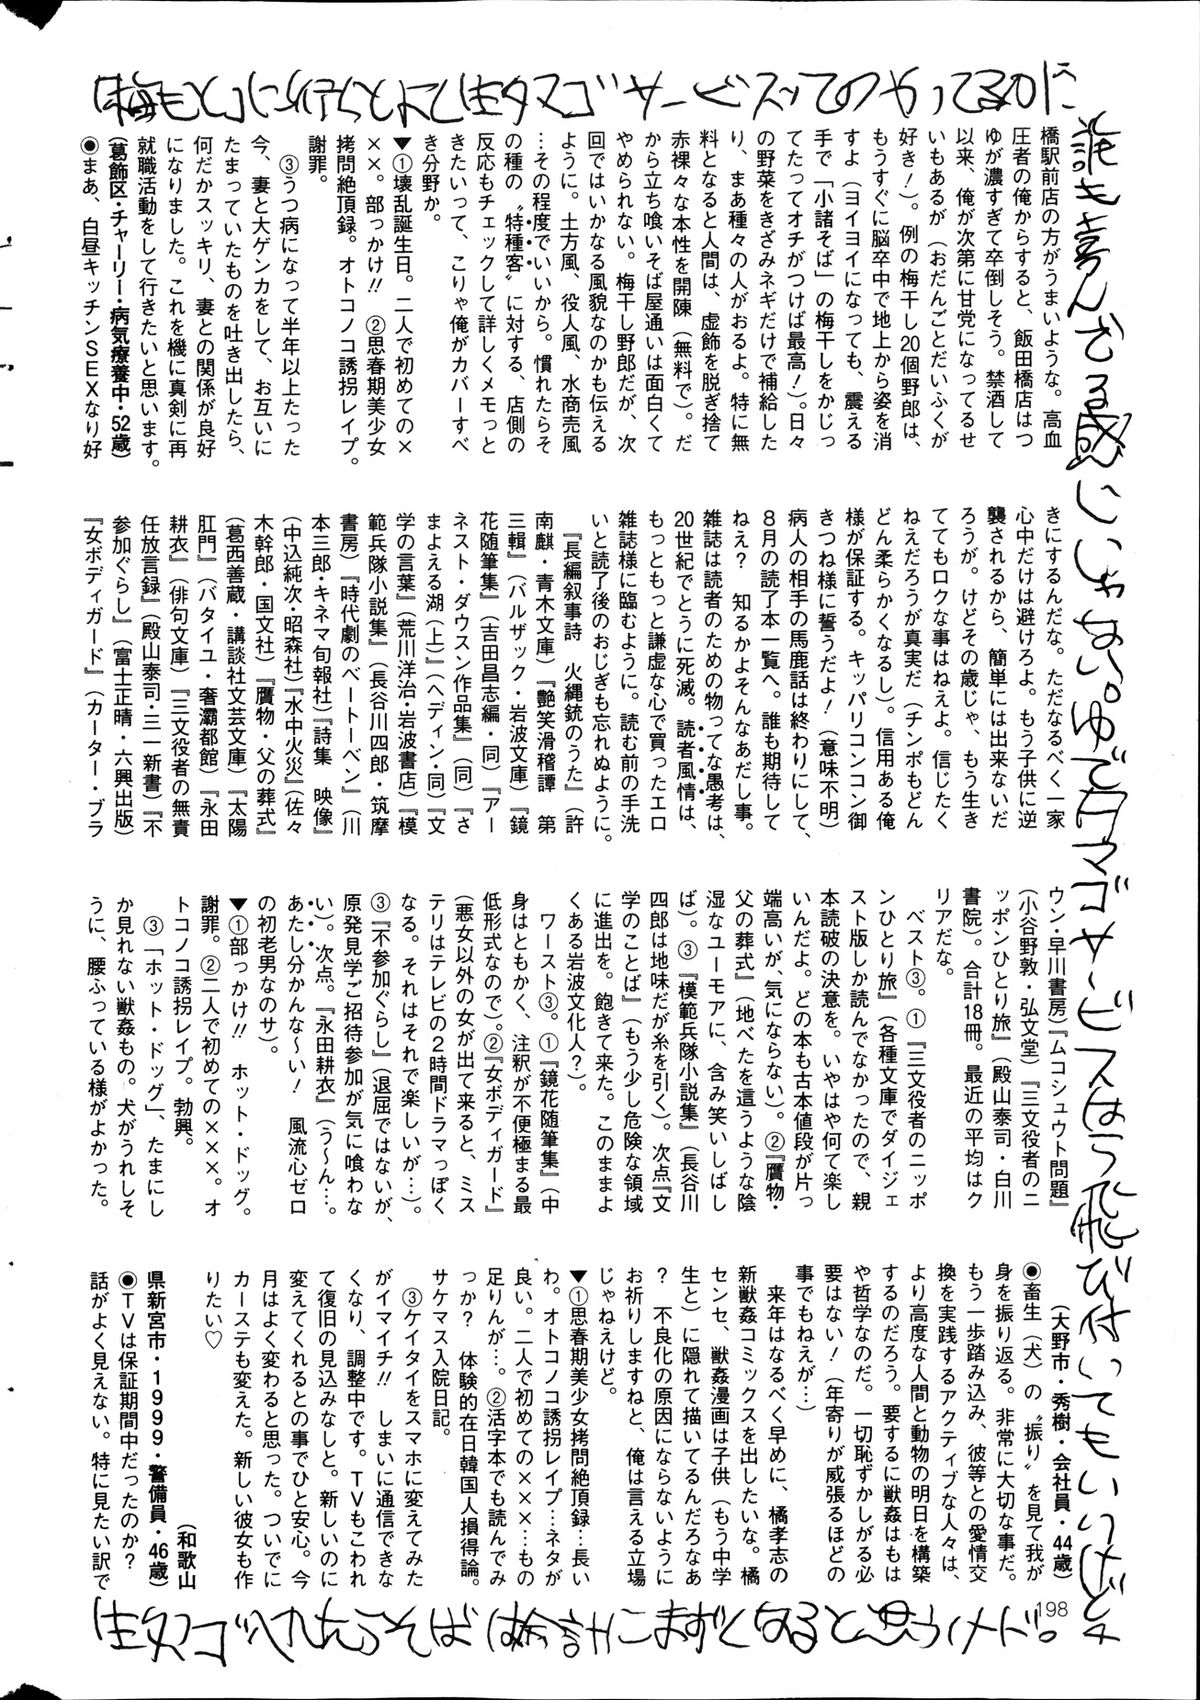 梅もとコに行ったらとよて生タマゴサービスってのやってるのに
誰も喜んどる感じじゃない。ゆでタマゴサービスはら飛び付いてもいいけどネ
橋駅前店の方がうまいような。高血
圧者の俺からすると、飯田橋店はつ
ゆが濃すぎて卒倒しそう。禁酒して
以来、俺が次第に甘党になってるせ
いもあるが（おだんごとだいふくが
好き！）。例の梅干し20個野郎は、
もうすぐに脳卒中で地上から姿を消
すよ（ヨイヨイになっても、震える
手で「小諸そば」の梅干しをかじっ
てたってオチがつけば最高！）。日々
の野菜をきざみネギだけで補給した
り、まあ種々の人がおるよ。特に無
料となると人間は、虚飾を脱ぎ捨て
赤裸々な本性を開陳（無料で）。だ
から立ち喰いそば屋通いは面白くて
やめられない。梅干し野郎だが、次
回ではいかなる風貌なのかも伝える
ように。土方風、役人風、水商売風
…その程度でいいから。慣れたらそ
の種の〝特種客〟に対する、店側の
反応もチェックして詳しくメモっと
きたいって、こりゃ俺がカバーすべ
き分野か。
▼①壊乱誕生日。二人で初めての×
××。部っかけ!!　②思春期美少女
拷問絶頂録。オトコノコ誘拐レイプ。
謝罪。
　③うつ病になって半年以上たった
今、妻と大ゲンカをして、お互いに
たまっていたものを吐き出したら、
何だかスッキリ、妻との関係が良好
になりました。これを機に真剣に再
就職活動をして行きたいと思います。
（葛飾区・チャーリー・病気療養中・52歳）
◉まあ、白昼キッチンSEXなり好
きにするんだな。ただなるべく一家
心中だけは避けろよ。もう子供に逆
襲されるから、簡単には出来ないだ
ろうが。けどその歳じゃ、もう生き
ててもロクな事はねえよ。信じたく
ねえだろうが真実だ（チンポもどん
どん柔らかくなるし）。信用ある俺
様が保証する。キッパリコンコン御
きつね様に誓うだよ！（意味不明）
病人の相手の馬鹿話は終わりにして、
8月の読了本一覧へ。誰も期待して
ねえ？　知るかよそんなあだし事。
雑誌は読者のための物ってな愚考は、
20世紀でとうに死滅。読者風情は、
もっともっと謙虚な心で買ったエロ
雑誌様に臨むように。読む前の手洗
いと読了後のおじぎも忘れぬように。
　『長編叙事詩　火縄銃のうた』（許
南麒・青木文庫）『艶笑滑稽譚　第
三輯』（バルザック・岩波文庫）『鏡
花随筆集』（吉田昌志編・同）『アー
ネスト・ダウスン作品集』（同）『さ
まよえる湖（上）』（ヘディン・同）『文
学の言葉』（荒川洋治・岩波書店）『模
範兵隊小説集』（長谷川四郎・筑摩
書房）『時代劇のベートーベン』（川
本三郎・キネマ旬報社）『詩集　映像』
（中込純次・昭森社）『水中火災』（佐々
木幹郎・国文社）『贋物・父の葬式』
（葛西善蔵・講談社文芸文庫）『太陽
肛門』（バタイユ・奢灞都館）『永田
耕衣』（俳句文庫）『三文役者の無責
任放言録』（殿山泰司・三一新書）『不
参加ぐらし』（富士正晴・六興出版）
『女ボディガード』（カーター・ブラ
ウン・早川書房）『ムコシュウト問題』
（小谷野敦・弘文堂）『三文役者のニ
ッポンひとり旅』（殿山泰司・白川
書院）。合計18冊。最近の平均はク
リアだな。
　ベスト③。①『三文役者のニッポ
ンひとり旅』（各種文庫でダイジェ
スト版しか読んでなかったので、親
本読破の決意を。いやはや何て楽し
いんだよ。どの本も古本値段が片っ
端高いが、気にならない）。②『贋物・
父の葬式』（地べたを這うような陰
湿なユーモアに、含み笑いしばし
ば）。③『模範兵隊小説集』（長谷川
四郎は地味だが糸を引く）。次点『文
学のことば』（もう少し危険な領域
に進出を。飽きて来た。このままよ
くある岩波文化人？）。
　ワースト③。①『鏡花随筆集』（中
身はともかく、注釈が不便極まる最
低形式なので）。②『女ボディガード』
（悪女以外の女が出て来ると、ミス
テリはテレビの2時間ドラマっぽく
なる。それはそれで楽しいが…）。
③『不参加ぐらし』（退屈ではないが、
原発見学ご招待参加が気に喰わな
い）。次点。『永田耕衣』（う〜ん…。
あたし分かんな〜い！　風流心ゼロ
の初老男なのサ）。
▼①部っかけ!!　ホット・ドッグ。
謝罪。②二人で初めての×××。オ
トコノコ誘拐レイプ。勃興。
　③「ホット・ドッグ」、たまにし
か見れない獣姦もの。犬がうれしそ
うに、腰ふっている様がよかった。
（大野市・秀樹・会社員・44歳）
◉畜生（犬）の〝振り〟を見て我が
身を振り返る。非常に大切な事だ。
もう一歩踏み込み、彼等との愛情交
換を実践するアクティブな人々は、
より高度な人間と動物の明日を構築
するのだろう。要するに獣姦はもは
や哲学なのだ。一切恥ずかしがる必
要はない！（年寄りが威張るほどの
事でもねえが…）
　来年はなるべく早めに、橘孝志の
新獣姦コミックスを出したいな。橘
センセ、獣姦漫画は子供（もう中学
生と）に隠れて描いてるんだろなあ
？　不良化の原因にならないように
お祈りしますねと、俺は言える立場
じゃねえけど。
▼①思春期美少女拷問絶頂録…長い
わ。オトコノコ誘拐レイプ…ネタが
良い。二人で初めての×××…もの
足りんが…。②活字本でも読んでみ
っか？　体験的在日韓国人損得論。
サケマス入院日記。
　③ケイタイをスマホに変えてみた
がイマイチ!!　しまいに通信できな
くなり、調整中です。TVもこわれ
て復旧の見込みなしと。新しいのに
変えてくれるとの事でひと安心。今
月はよく変わると思った。ついでに
カーステも変えた。新しい彼女も作
りたい♡
（和歌山
県新宮市・1999・警備員・46歳）
◉TVは保証期間中だったのか？
話がよく見えない。特に見たい訳で
生タマゴ入れたらそば 会計こまずくなると思うノメド。
198